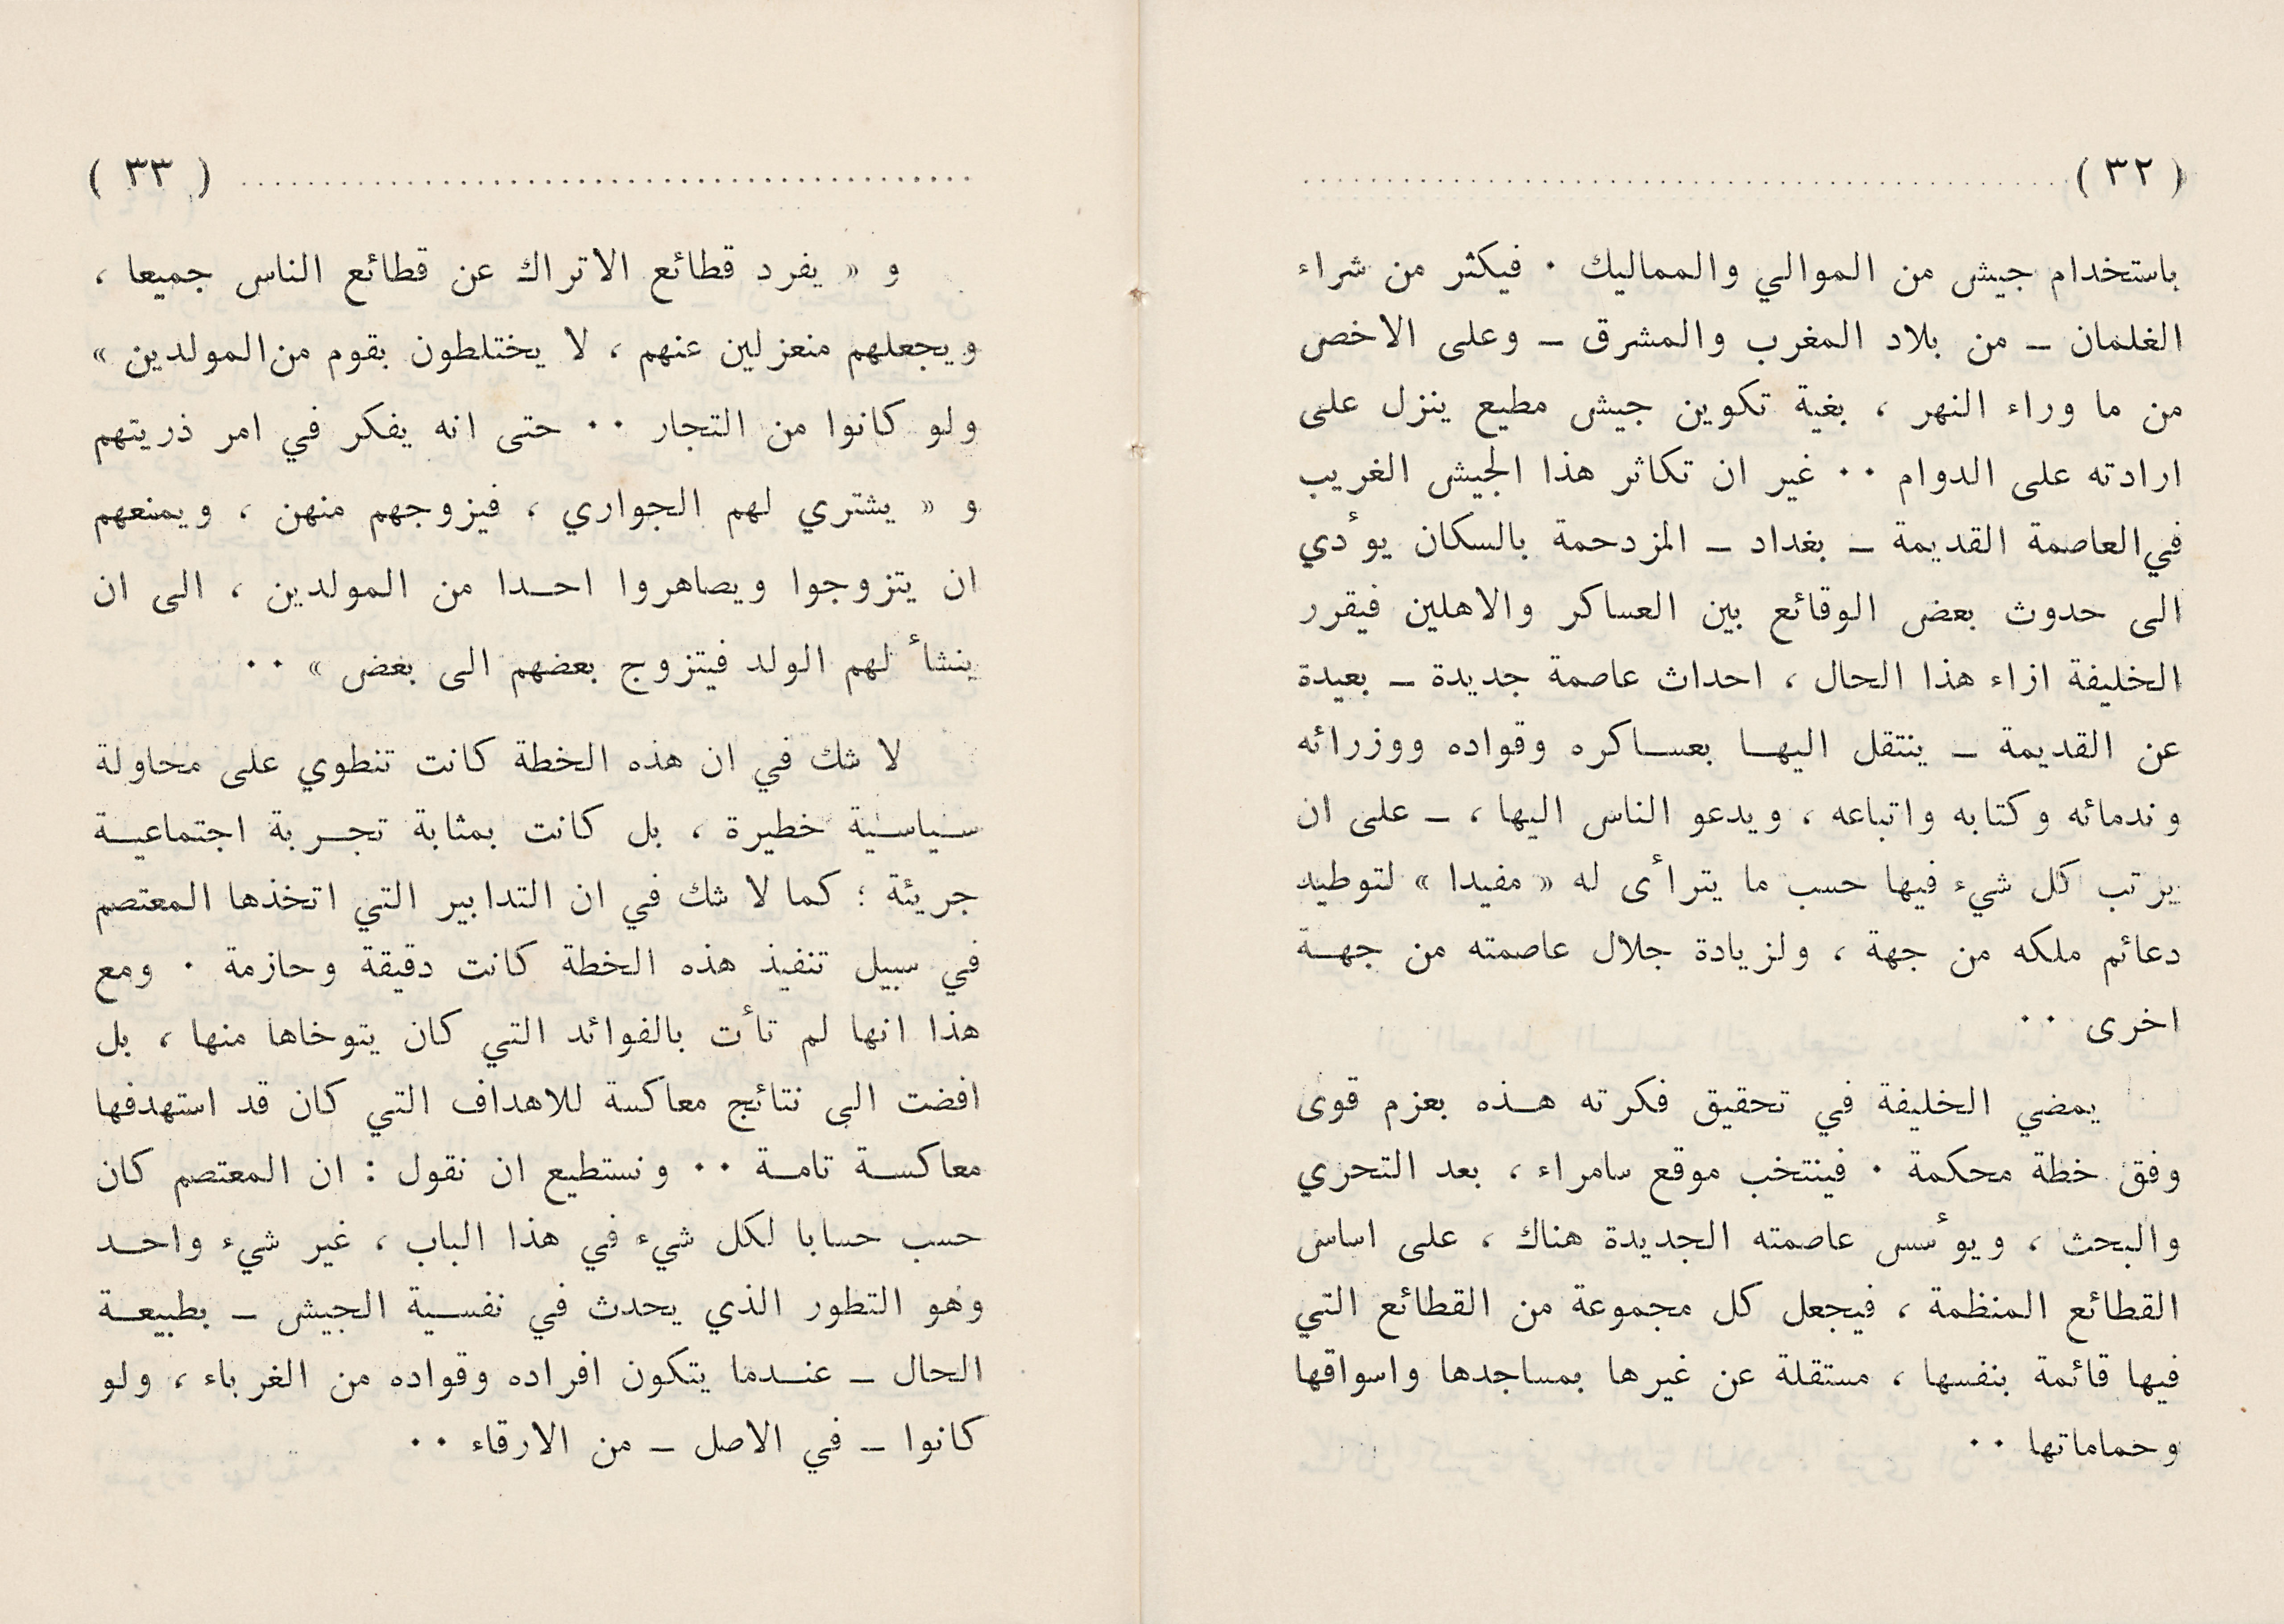 ( ٣٢ ) ..............................................
باستخدام جيش من الموالي والمماليك ٠ فيكثر من شراء
الغلمان ــ من بلاد المغرب والمشرق ــ وعلى الاخص
من ما وراء النهر ، بغية تكوين جيش مطيع ينزل على
ارادته على الدوام ٠٠ غير ان تكاثر هذا الجيش الغريب
في العاصمة القديمة ــ بغداد ــ المزدحمة بالسكان يوءدي
الى حدوث بعض الوقائع بين العساكر والاهلين فيقرر
الخليفة ازاء هذا الحال ، احداث عاصمة جديدة ــ بعيدة
عن القديمة ــ ينتقل اليهـا بعسـاكره وقواده ووزرائه
وندمائه وكتابه واتباعه ، ويدعو الناس اليها ، ــ على ان
يرتب كل شيء فيها حسب ما يترأى له « مفيدا » لتوطيد
دعائم ملكه من جهة ، ولزيادة جلال عاصمته من جهـة
اخرى ٠٠
يمضي الخليفة في تحقيق فكرته هـذه بعزم قوى
وفق خطة محكمة ٠ فينتخب موقع سامراء ، بعد التحري
والبحث ، ويوءسس عاصمته الجديدة هناك ، على اساس
القطائع المنظمة ، فيجعل كل مجموعة من القطائع التي
فيها قائمة بنفسها ، مستقلة عن غيرها بمساجدها واسواقها
وحماماتها ٠٠
.............................................. ( ٣٣ )
و « يفرد قطائع الاتراك عن قطائع الناس جميعا ،
ويجعلهم منعزلين عنهم ، لا يختلطون بقوم من المولدين »
ولو كانوا من التجار ٠٠ حتى انه يفكر في امر ذريتهم
و « يشتري لهم الجواري ، فيزوجهم منهن ، ويمنعهم
ان يتزوجوا ويصاهروا احـدا من المولدين ، الى ان
ينشأ لهم الولد فيتزوج بعضهم الى بعض » ٠٠
لا شك في ان هذه الخطة كانت تنطوي على محاولة
سـياسـية خطيرة ، بل كانت بمثابة تجـربة اجتماعيـة
جريئة ؛ كما لا شك في ان التدابير التي اتخذها المعتصم
في سبيل تنفيذ هذه الخطة كانت دقيقة وحازمة ٠ ومع
هذا انها لم تأت بالفوائد التي كان يتوخاها منها ، بل
افضت الى نتائج معاكسة للاهداف التي كان قد استهدفها
معاكسـة تامـة ٠٠ ونستطيع ان نقول : ان المعتصم كان
حسب حسابا لكل شيء في هذا الباب ، غير شيء واحـد
وهو التطور الذي يحدث في نفسـية الجيش ــ بطبيعـة
الحال ــ عنـدما يتكون افراده وقواده من الغرباء ، ولو
كانوا ــ في الاصل ــ من الارقاء ٠٠